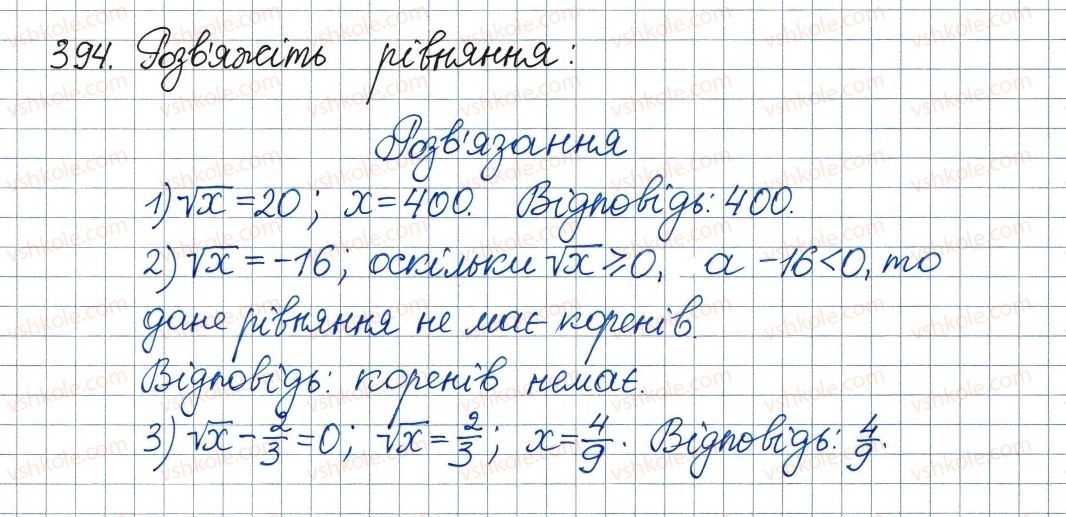 394. Розв'яжіть рівняння:
Розв'язання
1) √x = 20; x = 400. Відповідь: 400.
2) √x = -16; оскільки √x ≥ 0, а -16 < 0, то
дане рівняння не має коренів.
Відповідь: коренів немає.
3) √x - 2/3 = 0; √x = 2/3; x = 4/9. Відповідь: 4/9.